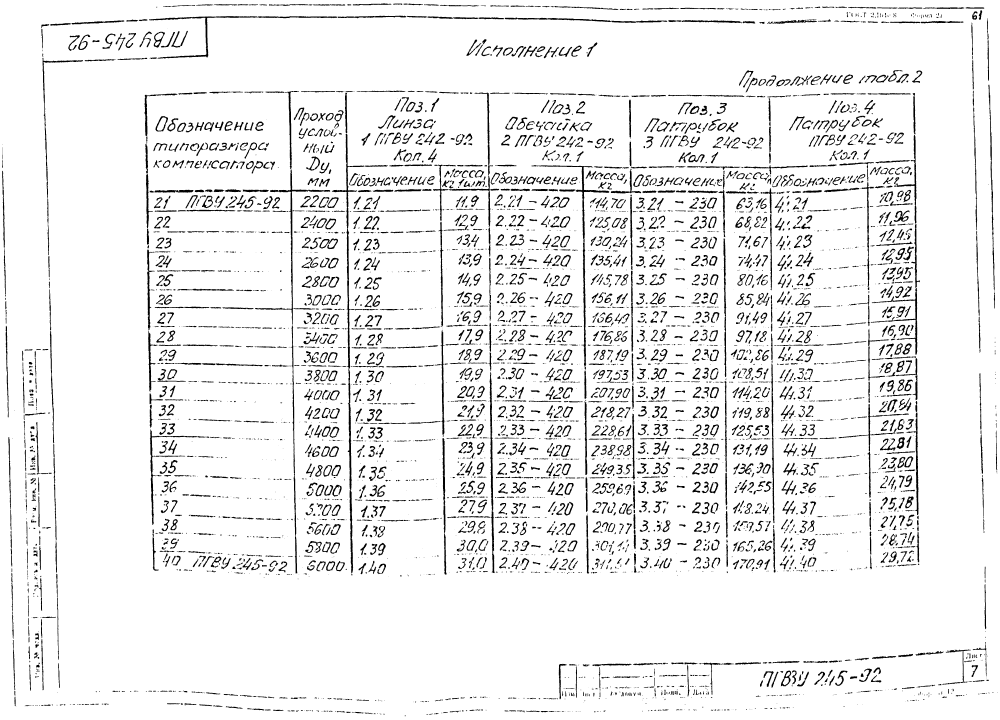 61
ПГВУ 245-92
Исполнение 1
Продолжение табл. 2
Обозначение типоразмера компенсатора
Проход условный Dy, мм
Поз. 1 Линза 1 ПГВУ 242-92 Кол. 4
Поз. 2 Обечайка 2 ПГВУ 242-92 Кол. 1
Поз. 3 Патрубок 3 ПГВУ 242-92 Кол. 1
Поз. 4 Патрубок ПГВУ 242-92 Кол. 1
Обозначение Масса, кг 1 шт. Обозначение Масса, кг Обозначение Масса, кг Обозначение Масса, кг
21 ПГВУ 245-92 2200 1.21 11,9 2.21 - 420 114,70 3.21 - 230 63,16 4.21 10,98
22 2400 1.22 12,9 2.22 - 420 125,08 3.22 - 230 68,82 4.22 11,96
23 2500 1.23 13,4 2.23 - 420 130,24 3.23 - 230 71,67 4.23 12,45
24 2600 1.24 13,9 2.24 - 420 135,41 3.24 - 230 74,47 4.24 12,95
25 2800 1.25 14,9 2.25 - 420 145,78 3.25 - 230 80,16 4.25 13,95
26 3000 1.26 15,9 2.26 - 420 156,11 3.26 - 230 85,84 4.26 14,92
27 3200 1.27 16,9 2.27 - 420 166,49 3.27 - 230 91,49 4.27 15,91
28 3400 1.28 17,9 2.28 - 420 176,86 3.28 - 230 97,18 4.28 16,90
29 3600 1.29 18,9 2.29 - 420 187,19 3.29 - 230 102,86 4.29 17,88
30 3800 1.30 19,9 2.30 - 420 197,53 3.30 - 230 108,51 4.30 18,87
31 4000 1.31 20,9 2.31 - 420 207,90 3.31 - 230 114,20 44.31 19,86
32 4200 1.32 21,9 2.32 - 420 218,27 3.32 - 230 119,88 44.32 20,84
33 4400 1.33 22,9 2.33 - 420 228,61 3.33 - 230 125,53 44.33 21,83
34 4600 1.34 23,9 2.34 - 420 238,98 3.34 - 230 131,19 44.34 22,81
35 4800 1.35 24,9 2.35 - 420 249,35 3.35 - 230 136,90 44.35 23,80
36 5000 1.36 25,9 2.36 - 420 259,69 3.36 - 230 142,55 44.36 24,79
37 1.37 27,9 2.37 - 420 270,06 3.37 - 230 148,24 44.37 25,78
38 5600 1.38 29,8 2.38 - 420 290,77 3.38 - 230 159,57 4.38 27,75
39 5800 1.39 30,0 2.39 - 420 3.39 - 230 165,26 4.39 28,74
40 ПГВУ 245-92 6000 1.40 31,0 2.40 - 420 3.40 - 230 170,91 4.40 29,72
ПГВУ 245-92
Лист
7